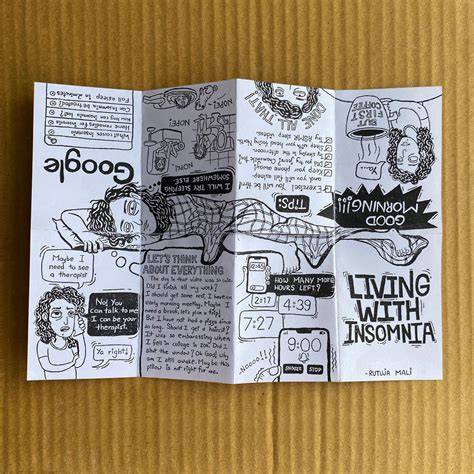 GOOD
MORNING!!!
BUT
FIRST
COFFEE
TIPS:
Exercise! You will be tired
and you will fall asleep.
Keep phone away.
in the afternoon.
Try ASMR sleep videos.
ALL THAT!
I WILL TRY SLEEPING
SOMEWHERE ELSE.
NOPE!
NOPE!
NOPE!
Google
What causes insomnia
Home remedies for insomnia
How long can insomnia last?
Can insomnia be treated?
Fall asleep in 2 minutes
Maybe I
need to see
a therapist
No! You
can talk to me
I can be your
therapist.
Ya right!
LET'S THINK
ABOUT EVERYTHING
The dog in that video was so cute.
Did I finish all my work?
I should get some rest, I have an
early morning meeting. Maybe I
need a break, let's plan a trip!
But I have not had a pizza since
so long. Should I get a haircut?
It was so embarrassing when
I fell in college in 2011. Did I
shut the window? Oh God! why
am I still awake. Maybe this
pillow is not right for me.
HOW MANY MORE
HOURS LEFT?
12:45
2:17
4:39
7:27
9:00
SNOOZE
STOP
LIVING
WITH
INSOMNIA
-RUTUJA MALI